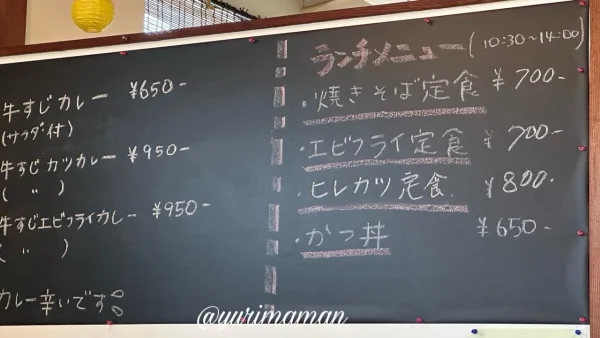 牛すじカレー ¥650-
(サラダ付)
牛すじカツカレー ¥950-
( 〃 )
牛すじエビフライカレー ¥950-
( 〃 )
カレー辛いです
ランチメニュー (10:30~14:00)
・焼きそば定食 ¥700-
・エビフライ定食 ¥700-
・ヒレカツ定食 ¥800-
・かつ丼 ¥650-
@yurimaman